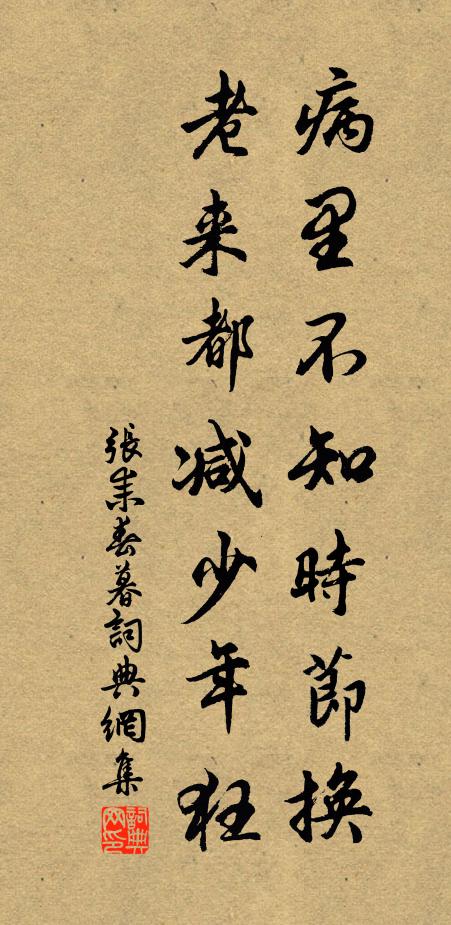 病里不知時節換
老来都減少年狂
張耒春暮詞典網集
詞典網印